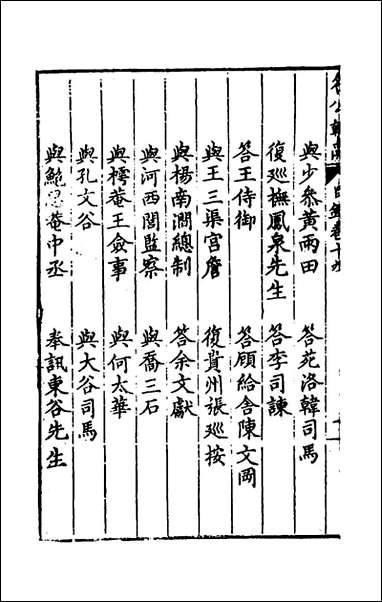 與少參黃雨田　答苑洛韓司馬
復巡撫鳳泉先生　答李司諫
答王侍御　答顧給舍陳文岡
與王三渠宫詹　復貴州張巡按
與楊南澗總制　答余文獻
與河西閻監察　與喬三石
與樗菴王僉事　與何太華
與孔文谷　與大谷司馬
與鮑菴中丞　奉訊東谷先生